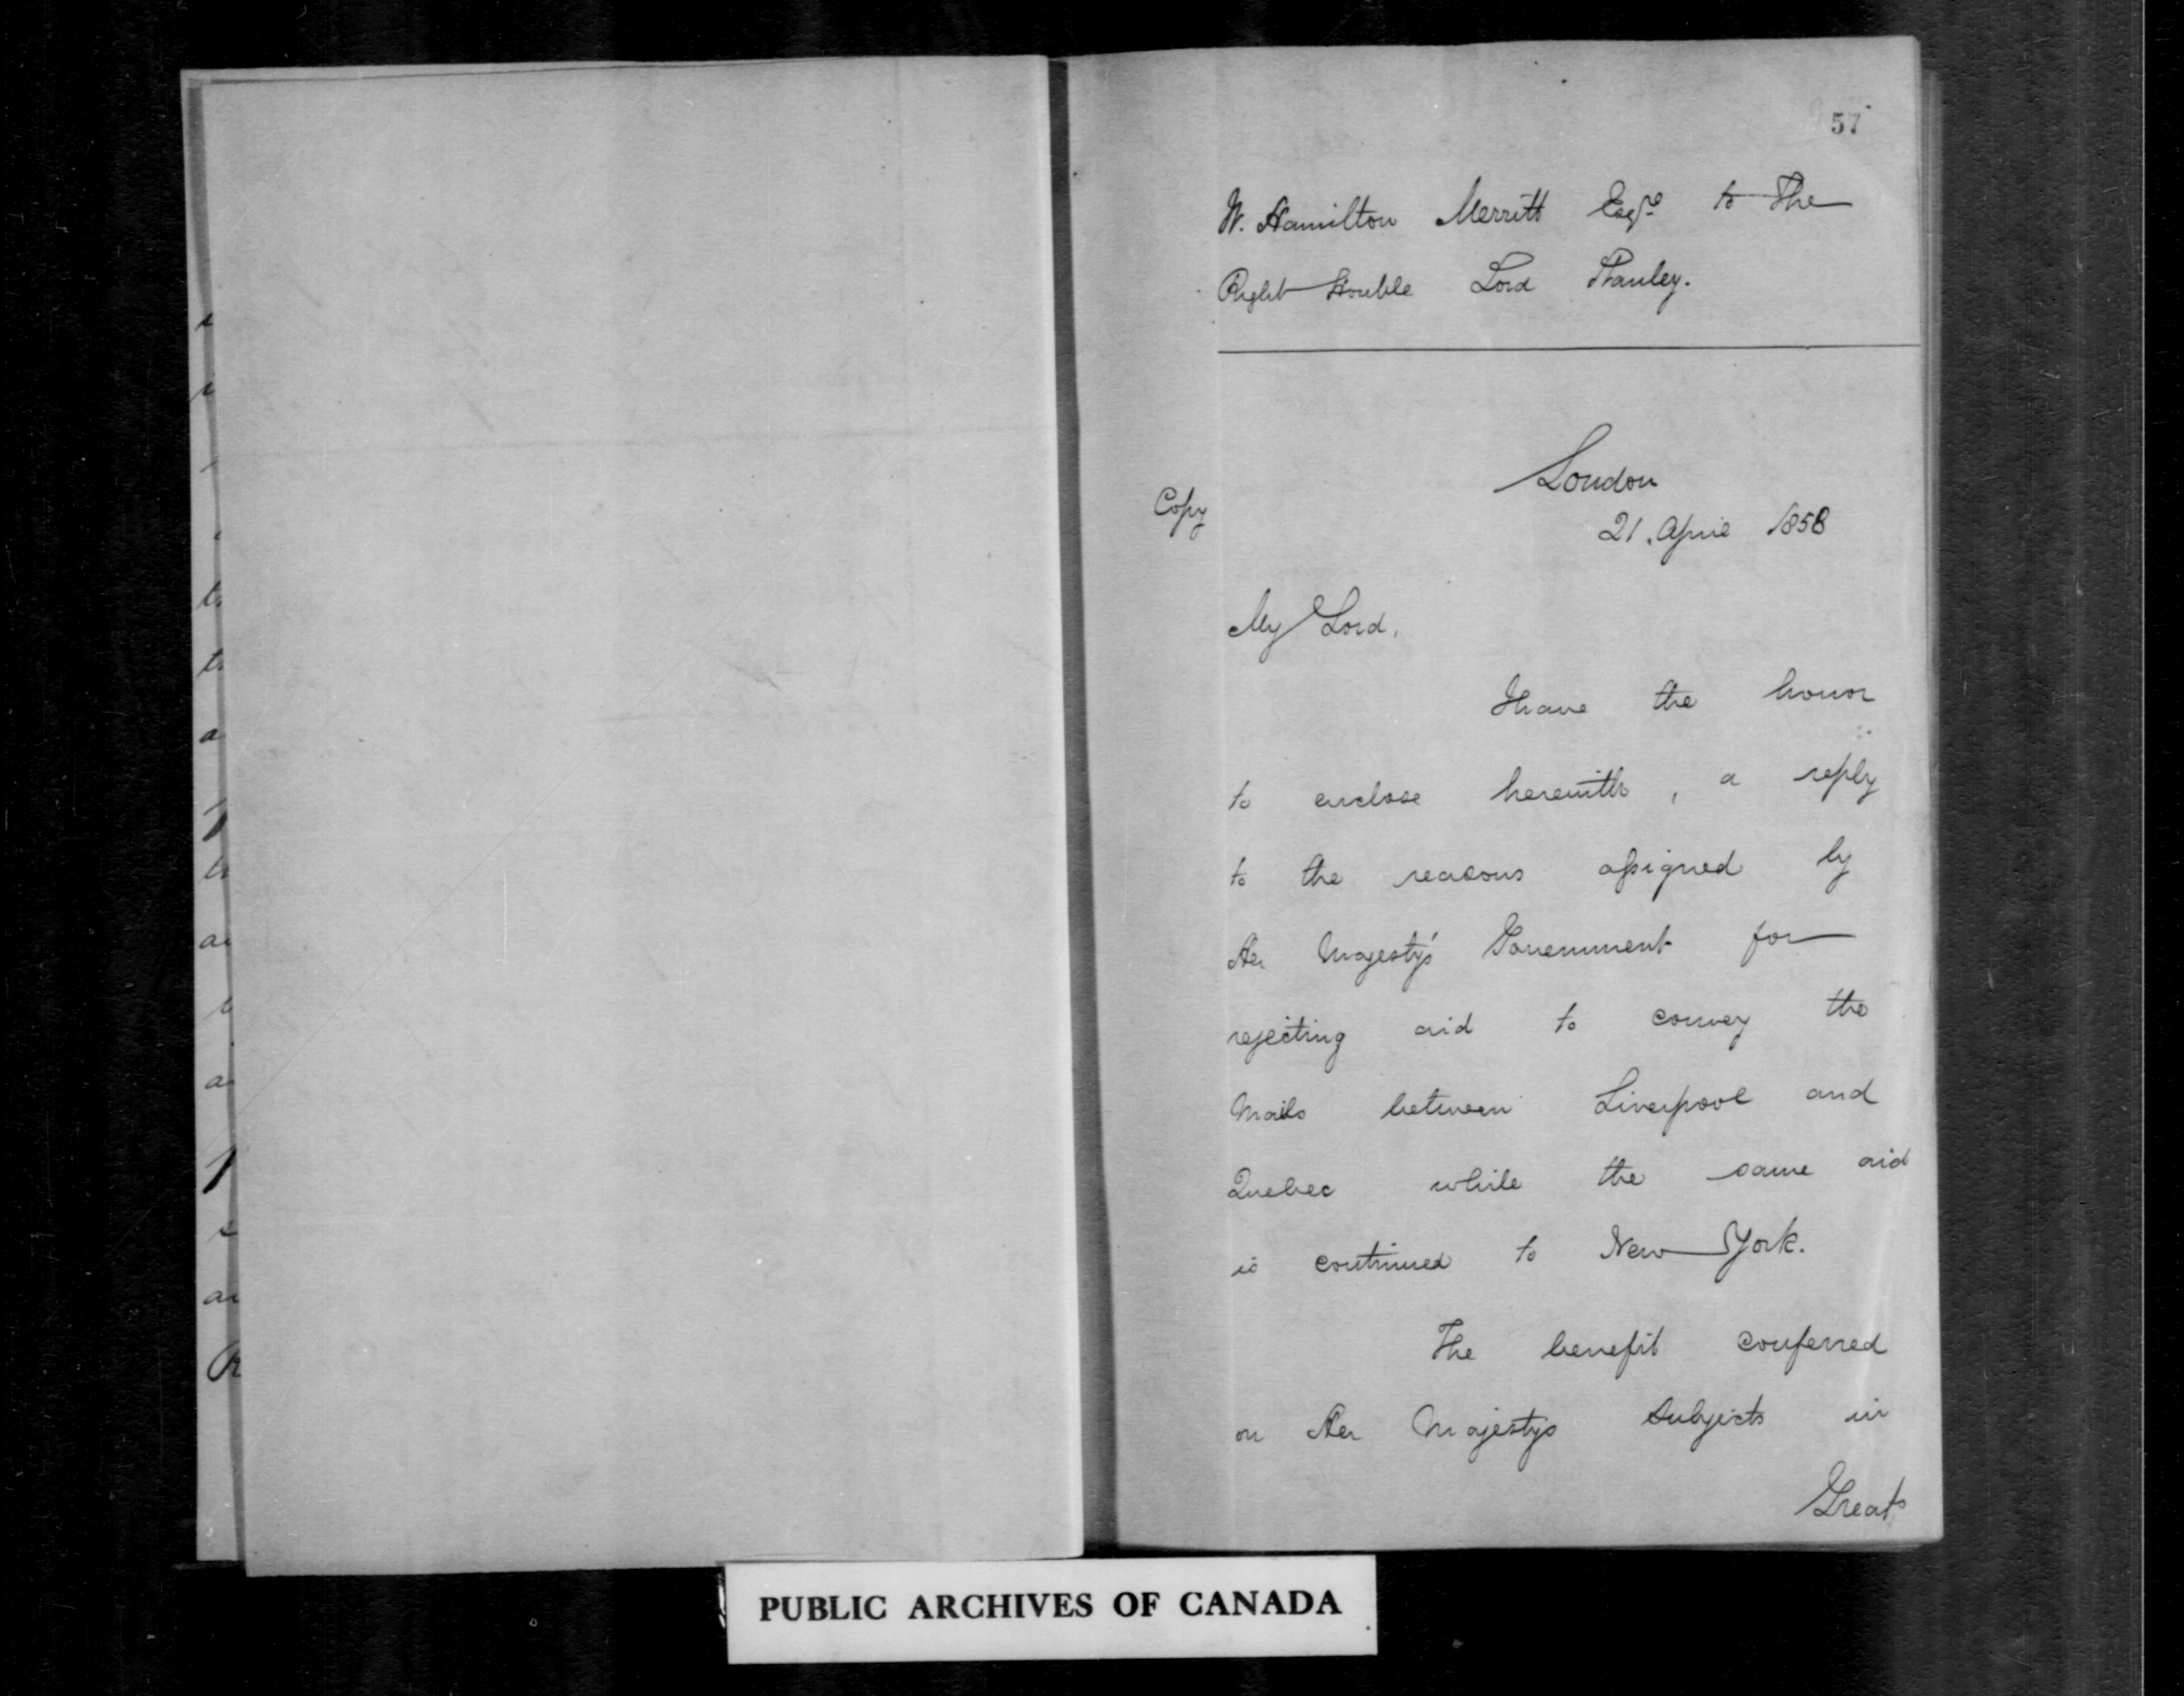 57
W. Hamilton Merritt Esqre to The
Right Honble Lord Stanley.
London
Copy
21. April 1858
My Lord,
I have the honor
to enclose herewith, a reply
to the reasons assigned by
Her Majesty's Government for
rejecting aid to convey the
Mails between Liverpool and
Quebec while the same aid
is continued to New York.
The benefit conferred
on Her Majestys Subjects in
Great
PUBLIC ARCHIVES OF CANADA